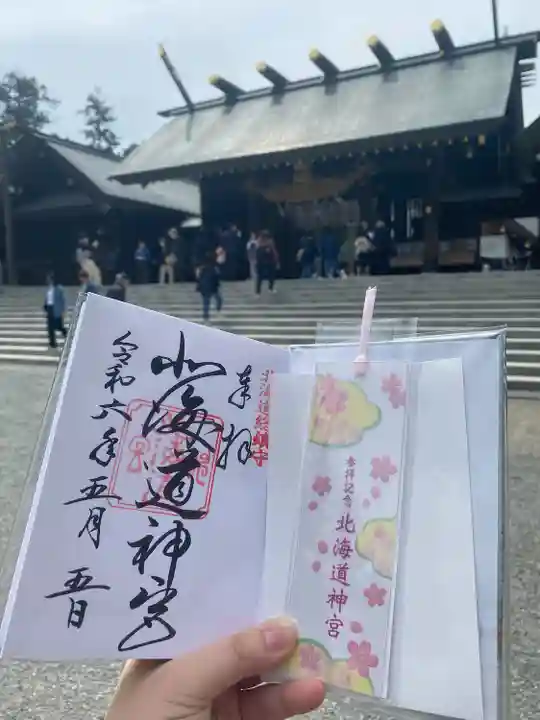 奉拝
北海道総鎮守
北海道神宮
令和六年五月五日
参拝記念
北海道神宮